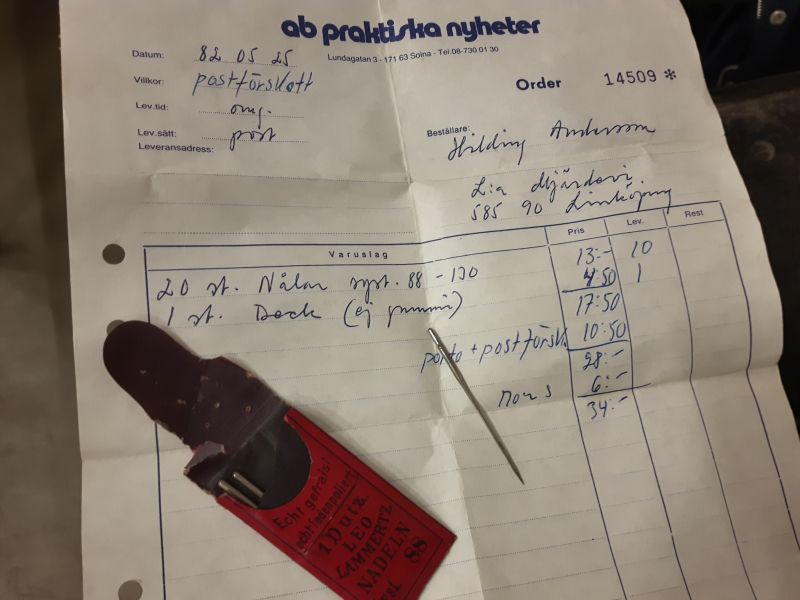 ab praktiska nyheter
Lundagatan 3 - 171 63 Solna - Tel. 08-730 01 30
Datum: 82 05 25
Villkor: postförskott
Order 14509 *
Lev.tid: omg.
Lev.sätt: post
Beställare: Hilding Andersson
Leveransadress:
L:a Mjärdevi
585 90 Linköping
Varuslag Pris Lev. Rest
20 st. Nålar syst. 88 - 130 13:- 10
1 st. Dock (ej gummi) 4:50 1
17:50
porto + postförsk. 10:50
28:-
moms 6:-
34:-
Echt gefräst!
echt fadenpoliert
1 Dutz.
LEO
LAMMERTZ
NADELN
88